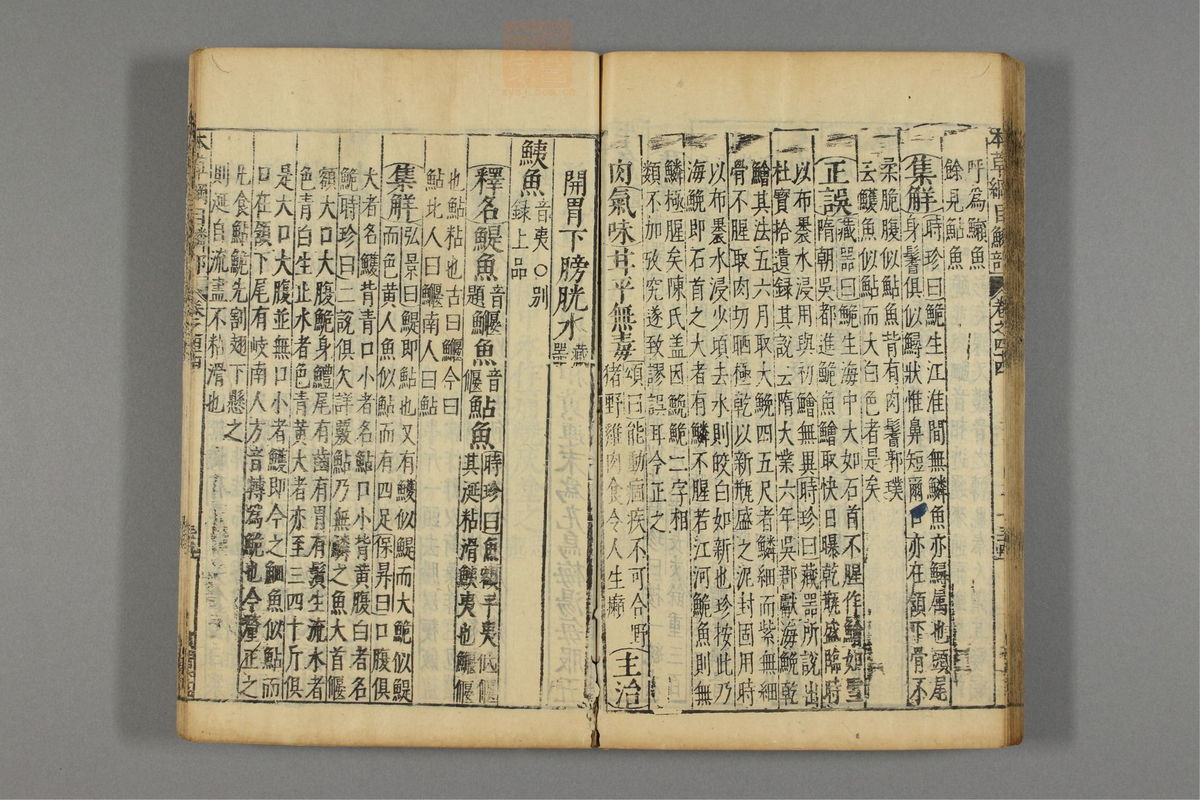 本草綱目鱗部 卷之四十四
呼為鱯魚
餘見鮎魚
集解時珍曰鮠生江淮間無鱗魚亦鱘属也頭尾
身鬐俱似鱘狀惟鼻短爾口亦在頷下骨不
柔脆腹似鮎魚背有肉鬐郭璞
云鱯魚似鮎而大白色者是矣
正誤藏器曰鮠生海中大如石首不腥作鱠如雪
隋朝吳都進鮠魚鱠取快日曝乾瓶盛臨時
以布裹水浸用與初鱠無異時珍曰藏器所說出
杜寶拾遺録其說云隋大業六年吳郡獻海鮸乾
鱠其法五六月取大鮸四五尺者鱗細而紫無細
骨不腥取肉切晒極乾以新瓶盛之泥封固用時
以布裹水浸少頃去水則皎白如新也珍按此乃
海鮸即石首之大者有鱗不腥若江河鮠魚則無
鱗極腥矣陳氏盖因鮸鮠二字相
類不加攷究遂致謬誤耳今正之
肉氣味甘平無毒頌曰能動痼疾不可合野
猪野雞肉食令人生癩主治
開胃下膀胱水藏器
鮧魚音夷○别
録上品
釋名鯷魚音題鰋魚音偃鮎魚時珍曰魚額平夷低偃
其涎粘滑鮧夷也鰋偃
也鮎粘也古曰鰋今曰
鮎北人曰鰋南人曰鮎
集解弘景曰鯷即鮎也又有鱯似鯷而大鮠似鯷
而色黄人魚似鮎而有四足保昇曰口腹俱
大者名鱯背青口小者名鮎口小背黄腹白者名
鮠時珍曰二說俱欠詳覈鮎乃無鱗之魚大首偃
額大口大腹鮠身鱧尾有齒有胃有鬚生流水者
色青白生止水者色青黄大者亦至三四十斤俱
是大口大腹並無口小者鱯即今之鮰魚似鮎而
口在頷下尾有岐南人方音轉為鮠也今釐正之
凢食鮎鮠先割翅下懸之
則涎自流盡不粘滑也
本草綱目鱗部 卷之四十四